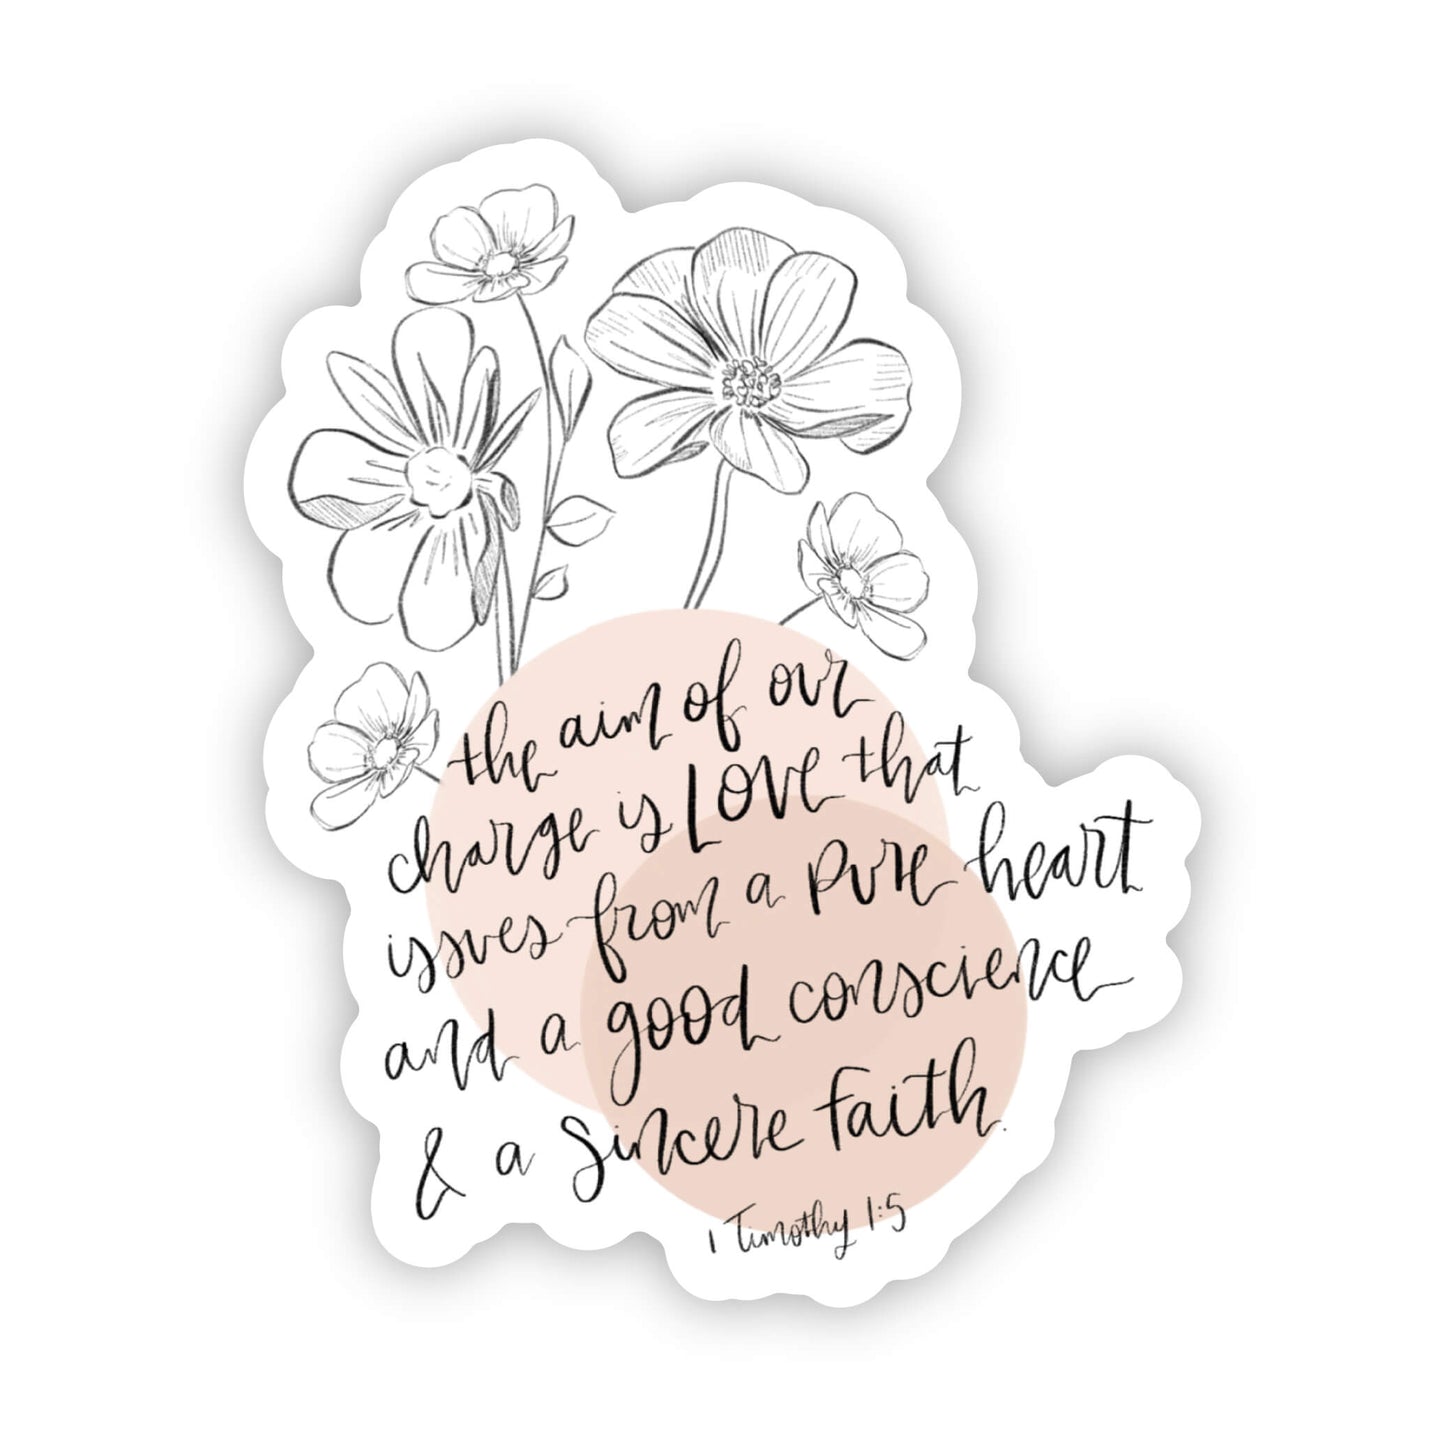 the aim of our
charge is LOVE that
issues from a pure heart
and a good conscience
& a sincere faith.
1 Timothy 1:5